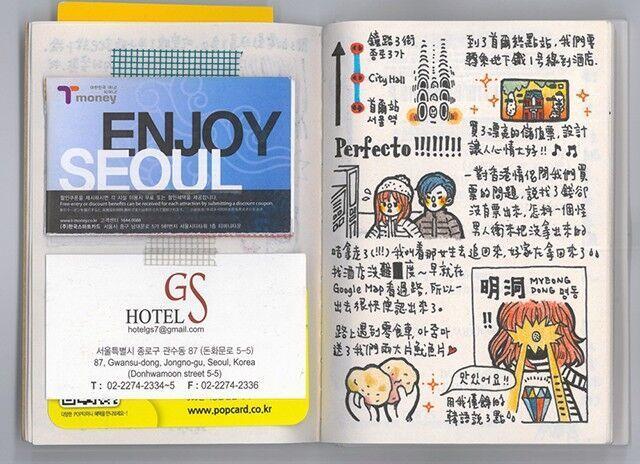 대한민국 대표
T money
ENJOY
SEOUL
할인쿠폰을 제시하시면 각 시설 이용시 무료 또는 할인혜택을 제공합니다.
Free entry or discount benefits can be received for each attraction by submitting a discount coupon.
www.t-money.co.kr 고객센터 1644.0088
(주)한국스마트카드
HOTEL GS
hotelgs7@gmail.com
서울특별시 종로구 관수동 87 (돈화문로 5-5)
87, Gwansu-dong, Jongno-gu, Seoul, Korea
(Donhwamoon street 5-5)
T : 02-2274-2334~5 F : 02-2274-2336
www.popcard.co.kr
鐘路3街
종로3가
City Hall
首爾站
서울역
Perfecto!!!!!!!!
到了首爾終點站,我們要
轉乘地下鐵1號線到酒店.
買了漂亮的儲值票,設計
讓人心情大好!!♪♫
一對香港情侶問我們買
票的問題,說找了錢卻
沒首票出來,怎料一個怪
男人衝來把沒拿出來的
唔拿走3(!!!)我叫着那女生去追回來,好家在拿回來了
找酒店沒難度~早就在
Google Map看過路,所以一
出去很快便認出來了.
路上遇到零食車,아줌마
送了我們兩大片魷魚片♥
明洞
MYEONG
DONG 명동
!!
맛있어요!!
用我僅餘的
韓語說了點